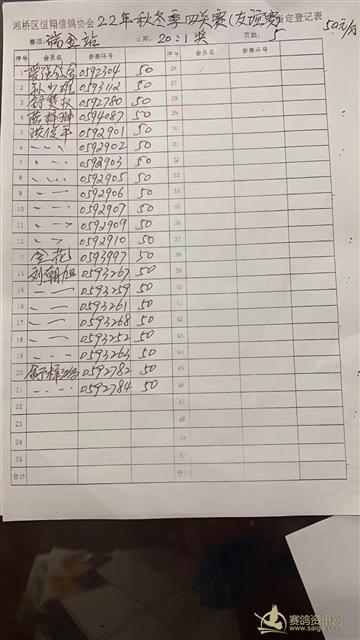 湘桥区恒翔信鸽协会 22年秋冬季四关赛(友谊赛 指定登记表 50元/羽
赛项: 瑞金站 二项: 20:1奖 页数: 5
序号 会员名 参赛环号 序号 会员名 参赛环号
1 0592304 50 26
2 0593112 50 27
3 0592780 50 28
4 0594087 50 29
5 洪俊平 0592901 50 30
6 〃 〃 0592902 50 31
7 〃 〃 0592903 50 32
8 〃 〃 0592905 50 33
9 〃 〃 0592906 50 34
10 〃 〃 0592907 50 35
11 〃 〃 0592909 50 36
12 〃 〃 0592910 50 37
13 0593997 50 38
14 刘朝旭 0593267 50 39
15 〃 〃 0593259 50 40
16 〃 〃 0593261 50 41
17 〃 〃 0593268 50 42
18 〃 〃 0593252 50 43
19 〃 〃 0593263 50 44
20 0592782 50 45
21 〃 〃 0592784 50 46
22 47
23 48
24 49
25 50
合计 合计
赛鸽资讯网
www.saige.com